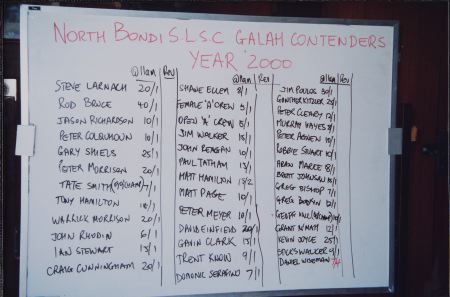 NORTH BONDI S.L.S.C GALAH CONTENDERS
YEAR 2000
@11am Rev
STEVE LARNACH 20/1
ROD BRUCE 40/1
JASON RICHARDSON 10/1
PETER COLQUHOUN 10/1
GARY SHIELS 25/1
PETER MORRISON 20/1
TATE SMITH 7/1
TONY HAMILTON
WARRICK MORRISON 20/1
JOHN RHODIN 6/1
IAN STEWART 15/1
CRAIG CUNNINGHAM 20/1
@11am Rev
SHANE ELLEM 8/1
FEMALE 'A' CREW 5/1
OPEN 'A' CREW 8/1
JIM WALKER 15/1
JOHN REAGAN 10/1
PAUL TATHAM 13/1
MATT HAMILTON 13/2
MATT PAGE 10/1
PETER MEYER 10/1
DAVID EINFIELD 20/1
GAVIN CLARK 13/1
TRENT KNOW 9/1
DOMONIC SERAFINO 7/1
@11am Rev
JIM POULOS 50/1
GUNTHER KITZLER 25/1
PETER CLEARY 17/1
MURRAY HAYES 8/1
PETER AGNEW 10/1
ROBBIE STUART 10/1
ADAM MARCE 8/1
BRETT JOHNSON 15/1
GREG BISHOP 7/1
GREG 10/1
GEOFF 10/1
GRANT 12/1
KEVIN DOYLE 25/1
BECKS WALKER 9/1
DANIEL WISEMAN 7/4